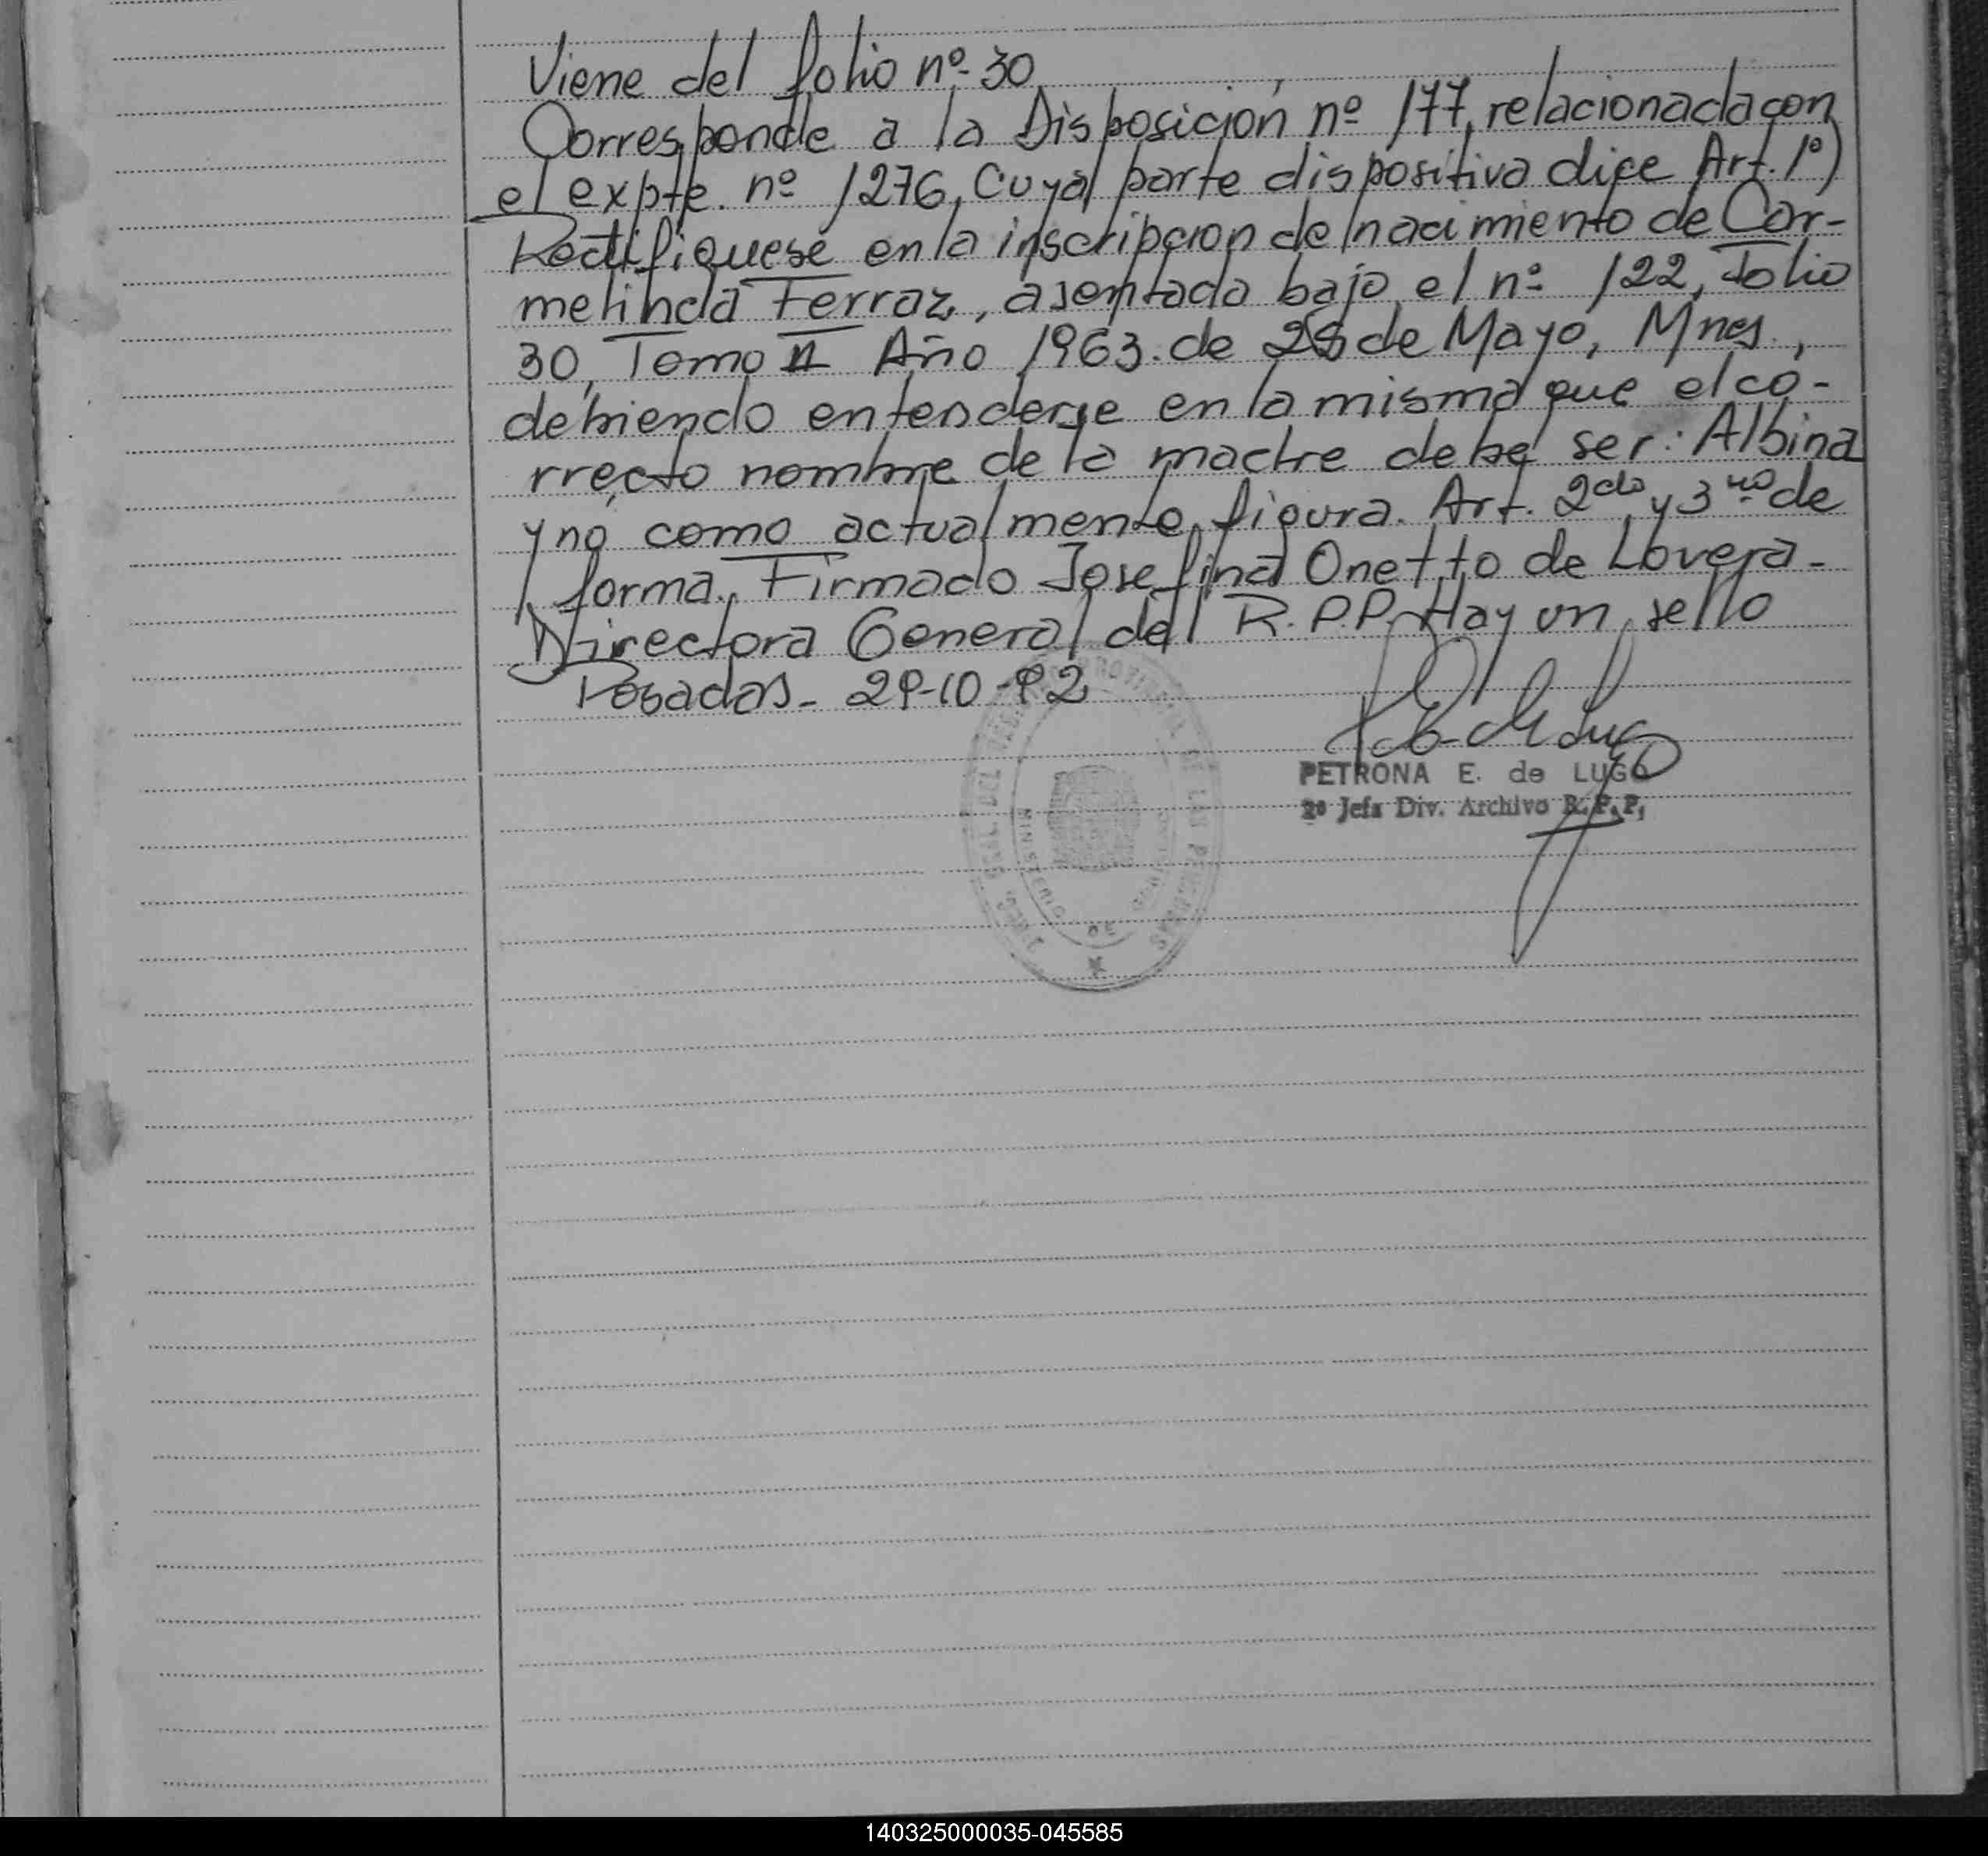 Viene del folio nº 30
Corresponde a la Disposición nº 177, relacionada con
el expte. nº 1276, Cuya parte dispositiva dice Art. 1º)
Rectifiquese en la inscripcion de nacimiento de Car-
melinda Ferraz, asentada bajo el nº 122, Folio
30, Tomo II Año 1963. de 25 de Mayo, Mnes.,
debiendo entenderse en la misma que el co-
rrecto nombre de la madre debe ser: Albina
y no como actualmente figura. Art. 2do y 3ro de
forma. Firmado Josefina Onetto de Lovera-
Directora General del R.P.P. Hay un sello
Posadas- 29-10-92
PETRONA E. de LUGO
2º Jefa Div. Archivo R.P.P.
MINISTERIO DE
DE LAS PERSONAS
140325000035-045585